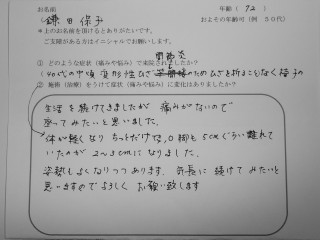 お名前 鎌田保子 年齢( 72 )
*上のお名前を頂けるとありがたいです。 およその年齢可(例 50代)
ご支障がある方はイニシャルでお願いします。
① どのような症状(痛みや悩み)で来院されましたか?
関節炎
(40代の中頃 変形性ひざ のためひざを折ることもなく椅子の
② 施術(治療)をうけて症状(痛みや悩み)に変化はありましたか?
生活を続けてきましたが 痛みがないので
座ってみたいと思いました。
体が軽くなり ちょっとだけな、O脚も5cmぐらい離れて
いたかが 2~3cmになりました。
姿勢もよくなりつつあります。気長に続けてみたいと
思いますのでよろしく お願い致します